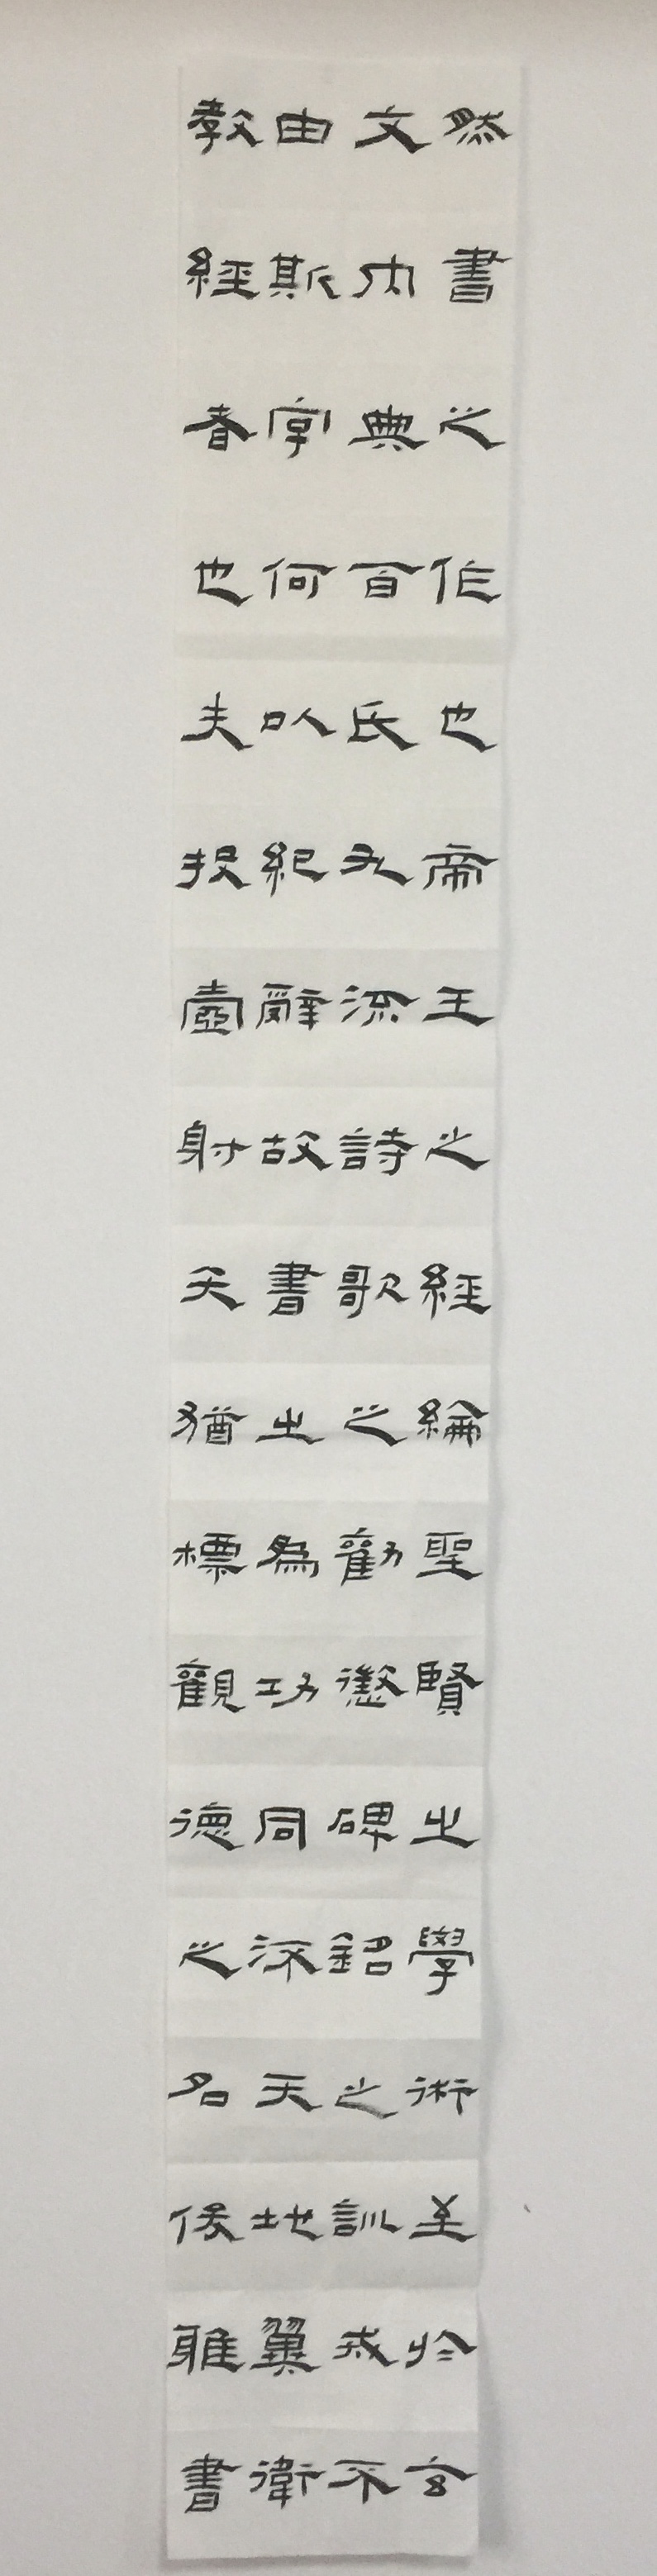 然書之作也帝王之經綸聖賢之學術至於玄
文內典百氏九流詩歌之勸懲碑銘之訓戒不
由斯字何以紀辭故書之為功同流天地翼衛
教經者也夫投壺射矢猶標觀德之名侯雅書